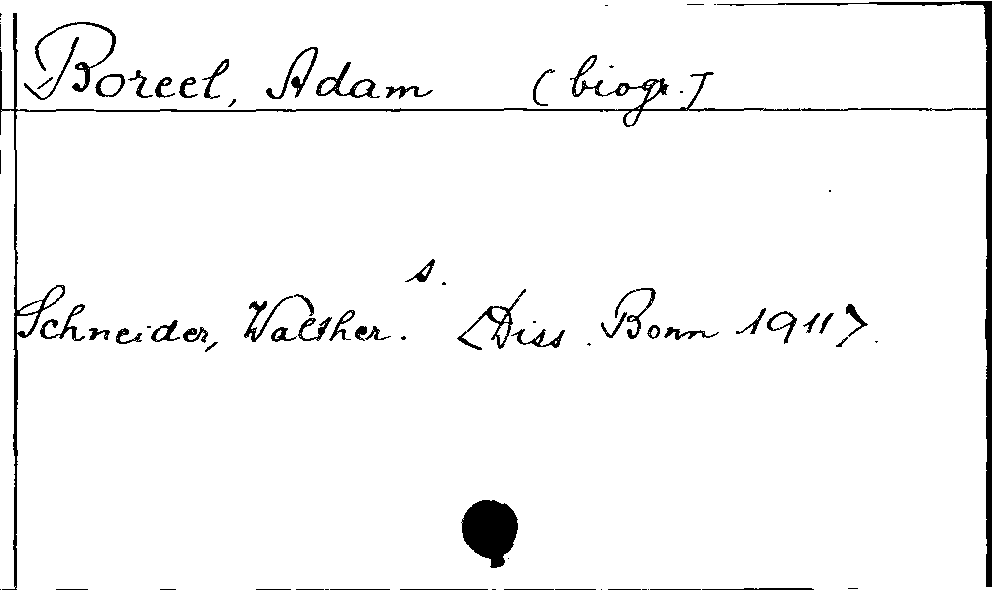 Boreel, Adam (biogr.)
s.
Schneider, Walther. <Diss. Bonn 1911>.